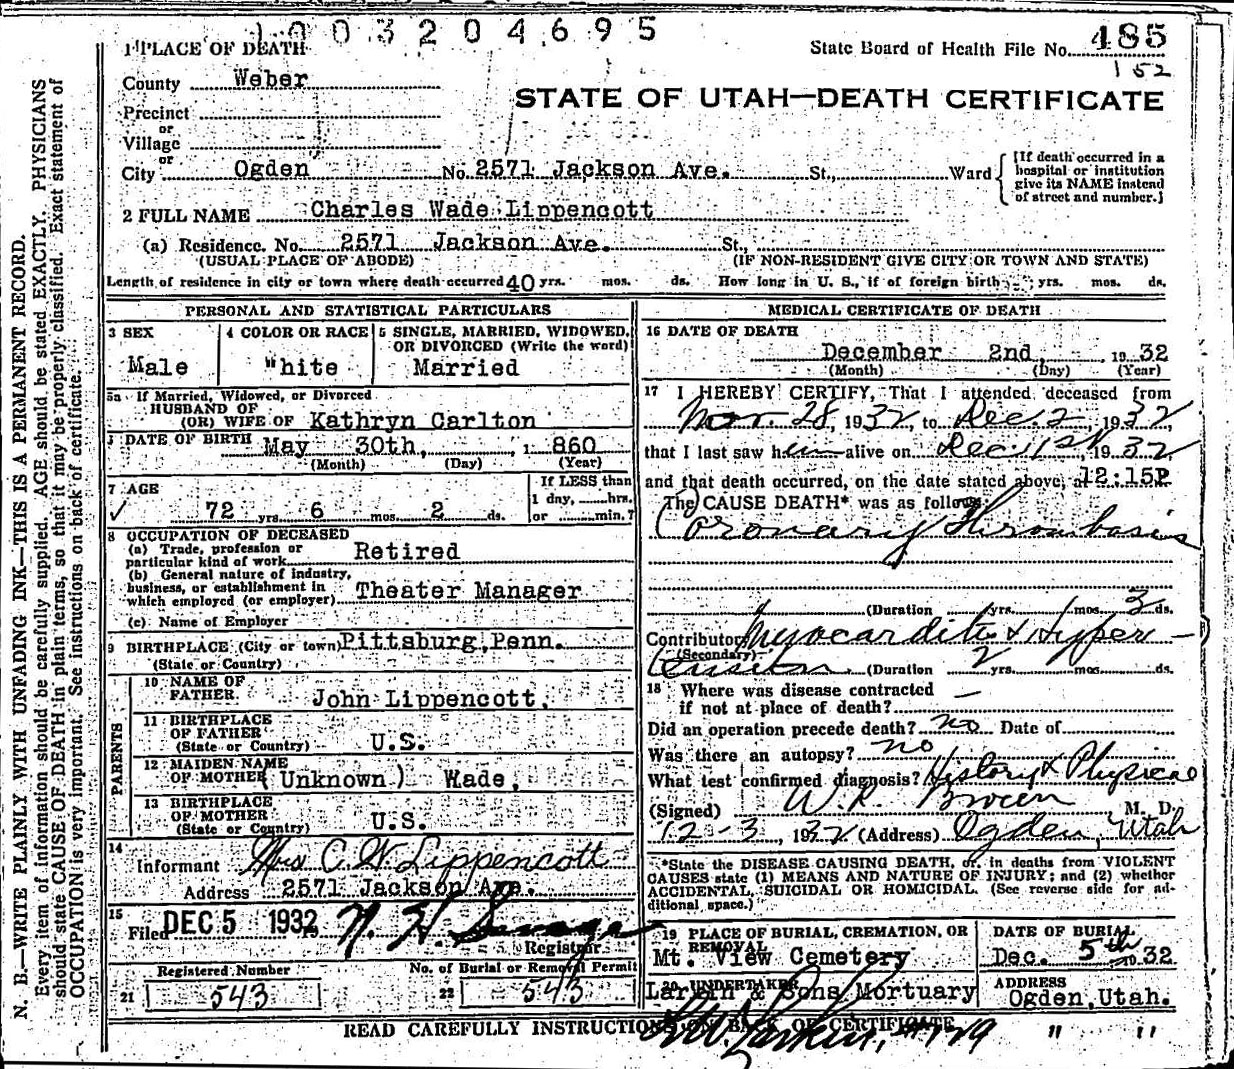 1003204695
1 PLACE OF DEATH
State Board of Health File No. 485
152
County Weber
STATE OF UTAH—DEATH CERTIFICATE
Precinct
or
Village
or
City Ogden No. 2571 Jackson Ave. St., Ward
[If death occurred in a hospital or institution give its NAME instead of street and number.]
2 FULL NAME Charles Wade Lippencott
(a) Residence. No. 2571 Jackson Ave. St.,
(USUAL PLACE OF ABODE) (IF NON-RESIDENT GIVE CITY OR TOWN AND STATE)
Length of residence in city or town where death occurred 40 yrs. mos. ds. How long in U. S., if of foreign birth yrs. mos. ds.
PERSONAL AND STATISTICAL PARTICULARS
3 SEX
Male
4 COLOR OR RACE
White
5 SINGLE, MARRIED, WIDOWED,
OR DIVORCED (Write the word)
Married
5a If Married, Widowed, or Divorced
HUSBAND OF
(OR) WIFE OF Kathryn Carlton
DATE OF BIRTH May 30th, 1 860
(Month) (Day) (Year)
7 AGE
72 yrs. 6 mos. 2 ds.
If LESS than
1 day, hrs.
or min.?
8 OCCUPATION OF DECEASED
(a) Trade, profession or
particular kind of work Retired
(b) General nature of industry,
business, or establishment in
which employed (or employer) Theater Manager
(c) Name of Employer
9 BIRTHPLACE (City or town) Pittsburg, Penn.
(State or Country)
PARENTS
10 NAME OF
FATHER John Lippencott,
11 BIRTHPLACE
OF FATHER
(State or Country) U.S.
12 MAIDEN NAME
OF MOTHER (Unknown) Wade,
13 BIRTHPLACE
OF MOTHER
(State or Country) U.S.
14
Informant Mrs C. W. Lippencott
Address 2571 Jackson Ave.
15
Filed DEC 5 1932 N. H. Savage
Registrar
Registered Number No. of Burial or Removal Permit
21 543 22 543
MEDICAL CERTIFICATE OF DEATH
16 DATE OF DEATH
December 2nd, 19 32
(Month) (Day) (Year)
17 I HEREBY CERTIFY, That I attended deceased from
Nov. 28, 1932, to Dec. 2, 1932
that I last saw him alive on Dec 1st, 1932
and that death occurred, on the date stated above, at 12:15P
The CAUSE DEATH* was as follows:
Coronary Thrombosis
(Duration yrs. mos. 3 ds.
Contributory Myocarditis & Hyper-
(Secondary)
tension (Duration 2 yrs. mos. ds.
18 Where was disease contracted
if not at place of death? —
Did an operation precede death? no Date of
Was there an autopsy? no
What test confirmed diagnosis? History & Physical
(Signed) W. R. M. D.
12-3, 1932 (Address) Ogden, Utah
*State the DISEASE CAUSING DEATH, or, in deaths from VIOLENT
CAUSES state (1) MEANS AND NATURE OF INJURY; and (2) whether
ACCIDENTAL, SUICIDAL OR HOMICIDAL. (See reverse side for ad-
ditional space.)
19 PLACE OF BURIAL, CREMATION, OR
REMOVAL
Mt. View Cemetery
DATE OF BURIAL
Dec. 5th 1932
20 UNDERTAKER
Larkin & Sons Mortuary
ADDRESS
Ogden, Utah.
" "
READ CAREFULLY INSTRUCTIONS ON BACK OF CERTIFICATE
N. B.—WRITE PLAINLY WITH UNFADING INK—THIS IS A PERMANENT RECORD.
Every item of information should be carefully supplied. AGE should be stated EXACTLY. PHYSICIANS
should state CAUSE OF DEATH in plain terms, so that it may be properly classified. Exact statement of
OCCUPATION is very important. See instructions on back of certificate.